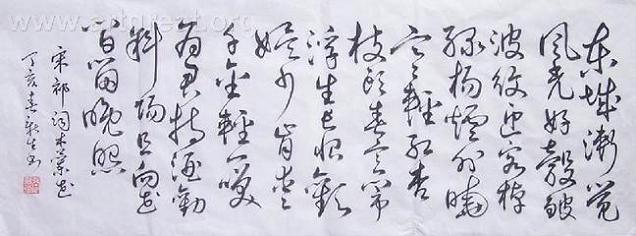 www.artgreat.org
东城渐觉
風光好縠皱
波纹迎客棹
绿杨烟外晓
寒輕红杏
枝头春意闹
浮生长恨歡
娱少肯爱
千金輕一笑
为君持酒勸
斜阳且向花
间留晚照
宋祁词木蘭花
丁亥春